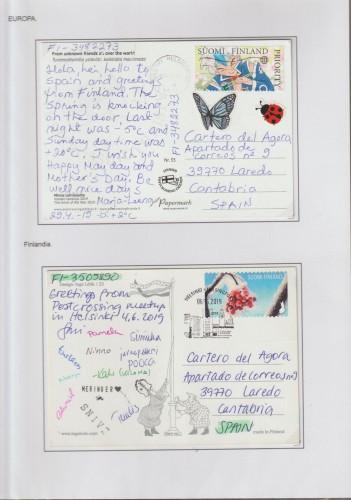 EUROPA.
FI-3482273
From unknown friends all over the world!
Hola, hei, hello to
Spain and greetings
from Finland. The
Spring is knocking
on the door. Last
night was -5°C and
Sunday day time was
+20°C. I wish you
Happy May day and
Mother's Day. Be
well nice days
Marja-Leena
29.4.-19
+2°C
SUOMI FINLAND
PRIORITY
FI-3482273
Nr. 55
Papermark
Cartero del Agora
Apartado de
correos nº 9
39770 Laredo
Cantabria
SPAIN
Finlandia.
FI-3509890
Greetings from
Postcrossing meetup
in Helsinki 4.6.2019
Pamela
Ninno
MERINGER
SUOMI FINLAND
2019
Cartero del Agora
Apartado de correos nº 9
39770 Laredo
Cantabria
SPAIN
made in Finland